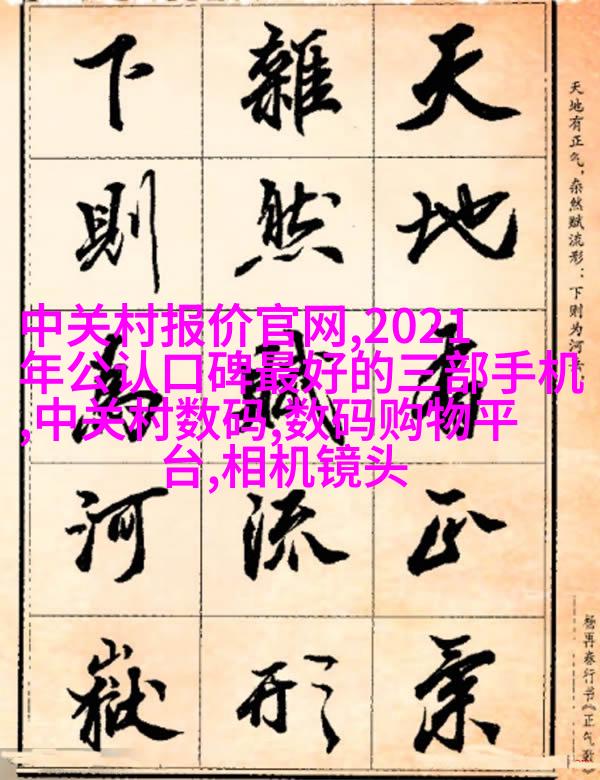 天地有正氣
雜然賦流形
下則為河嶽
天地有正气,杂然赋流形:下则为河岳,
杨再春行书《正气歌》
中关村报价官网,2021
年公认口碑最好的三部手机
,中关村数码,数码购物平
台,相机镜头